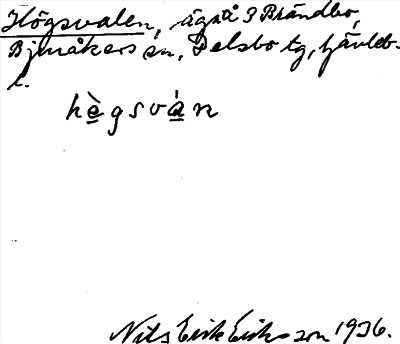 Högsvalen, ägstå 3 Brändbo,
Bjuråkers sn, Delsbo tg, Gävleb.
l.
hègsván
Nils Erik Eriksson 1936.